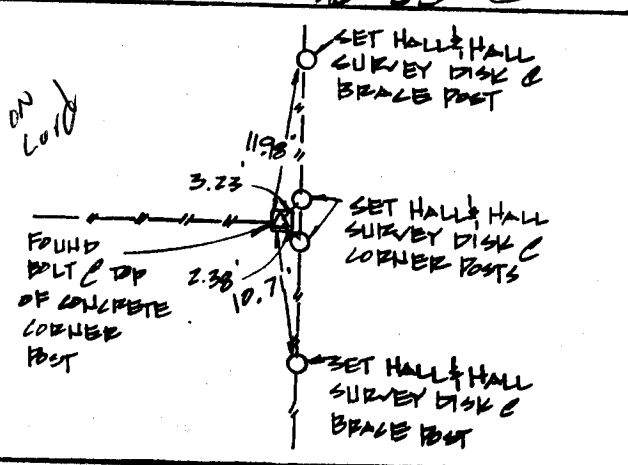 SET HALL & HALL
SURVEY DISK @
BRACE POST
ON
11.98'
3.23'
SET HALL & HALL
SURVEY DISK @
CORNER POSTS
FOUND
BOLT @ TOP
OF CONCRETE
CORNER
POST
2.38'
10.71'
SET HALL & HALL
SURVEY DISK @
BRACE POST